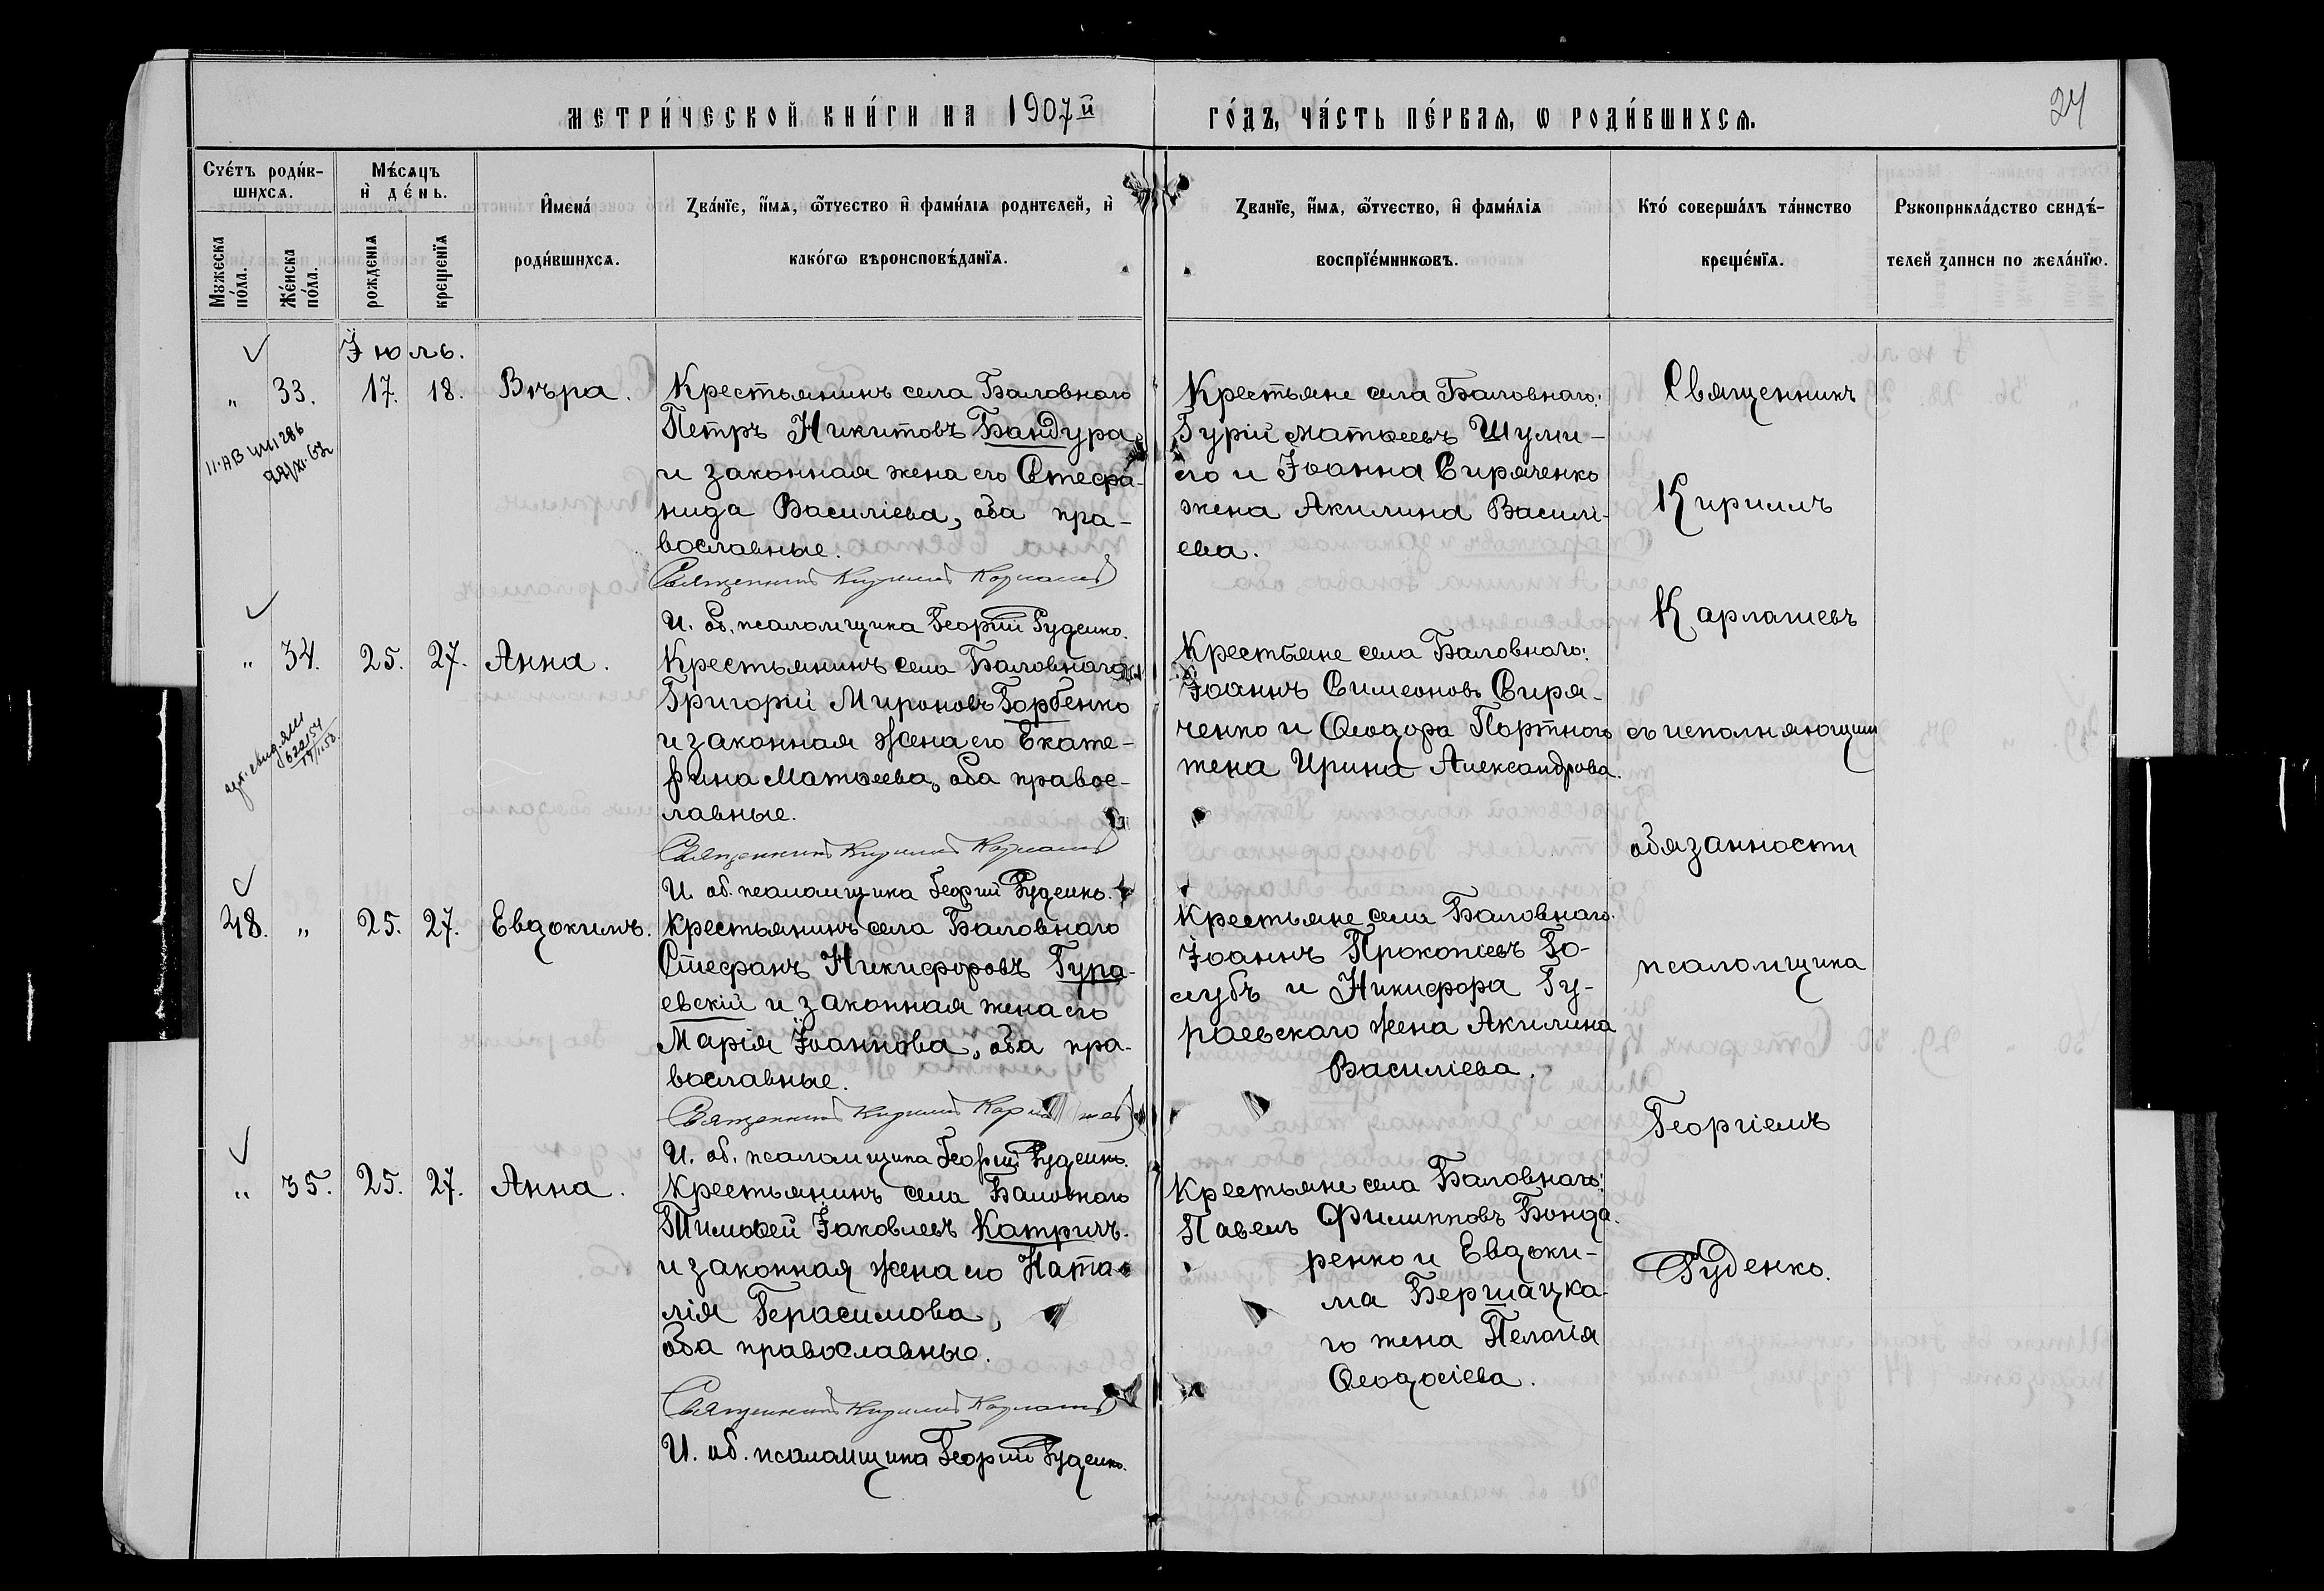 МЕТРИ́ЧЕСКОЙ КНИ́ГИ НА 1907й
ГО́ДЪ, ЧА́СТЬ ПЕ́РВАѦ, Ѡ РОДИ́ВШИХСѦ.
24
Сче́тъ роди́в-
шихсѧ.
Мꙋжеска
по́ла.
Же́нска
по́ла.
Мѣ́сѧцъ
и҆ де́нь.
рожденїѧ
крещенїѧ
И҆мена́
роди́вшихсѧ.
Ꙁва́нїе, и҆́мѧ, ѻ҆́тчество и҆ фами́лїѧ родителей, и҆
како́гѡ вѣроисповѣ́данїѧ.
Ꙁванїе, и҆́мѧ, ѻ҆́тчество, и҆ фами́лїѧ
воспрїе́мникѡвъ.
Кто́ соверша́лъ та́инство
креще́нїѧ.
Рꙋкоприкла́дство свидѣ́-
телей ꙁаписи по жела́нїю.
Іюль.
„ 33. 17. 18. Вѣра.
Крестьянинъ села Баловнаго
Петръ Никитовъ Бандура
и законная жена его Стефа-
нида Василіева, оба пра-
вославные.
Священникъ Кириллъ Карлашевъ
И. об. псаломщика Георгій Руденко.
Крестьяне села Баловнаго:
Гурій Матѳеевъ Шуми-
ло и Іоанна Сиряченко
жена Акилина Василі-
ева.
„ 34. 25. 27. Анна.
Крестьянинъ села Баловнаго
Григорій Мироновъ Горбенко
и законная жена его Екате-
рина Матѳеева, оба правос-
лавные.
Священникъ Кириллъ Карлашевъ
И. об. псаломщика Георгій Руденко.
Крестьяне села Баловнаго:
Іоаннъ Симеоновъ Сиря-
ченко и Ѳеодора Портного
жена Ирина Александрова.
48. „ 25. 27. Евдокимъ.
Крестьянинъ села Баловнаго
Стефанъ Никифоровъ Гура-
евскій и законная жена его
Марія Іоаннова, оба пра-
вославные.
Священникъ Кириллъ Карлашевъ
И. об. псаломщика Георгій Руденко.
Крестьяне села Баловнаго:
Іоаннъ Прокопіевъ Го-
лубъ и Никифора Гу-
раевскаго жена Акилина
Василіева.
„ 35. 25. 27. Анна.
Крестьянинъ села Баловнаго
Тимоѳей Іаковлевъ Катричъ
и законная жена его Ната-
лія Герасимова,
оба православные.
Священникъ Кириллъ Карлашевъ
И. об. псаломщика Георгій Руденко.
Крестьяне села Баловнаго:
Павелъ Филипповъ Бонда-
ренко и Евдоки-
ма Бершацка-
го жена Пелагія
Ѳеодосіева.
Священникъ
Кириллъ
Карлашевъ
съ исполняющимъ
обязанности
псаломщика
Георгіемъ
Руденко.